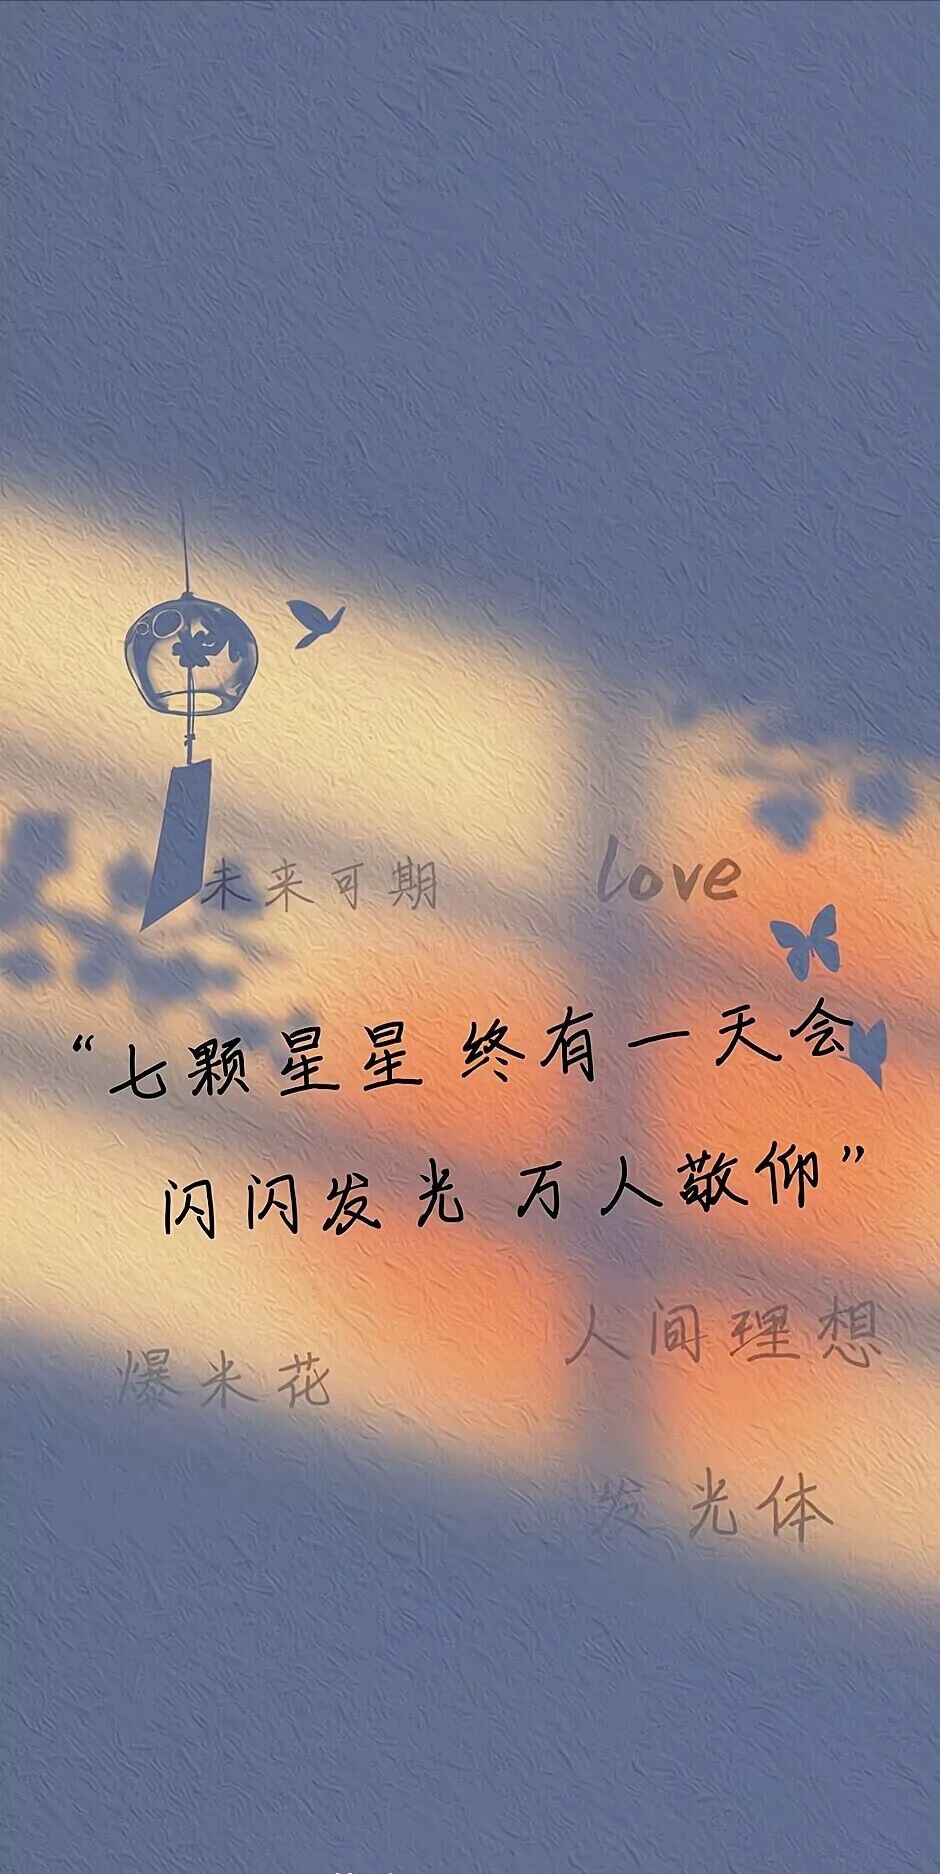 未来可期
love
“七颗星星 终有一天会
闪闪发光 万人敬仰”
人间理想
爆米花
发光体